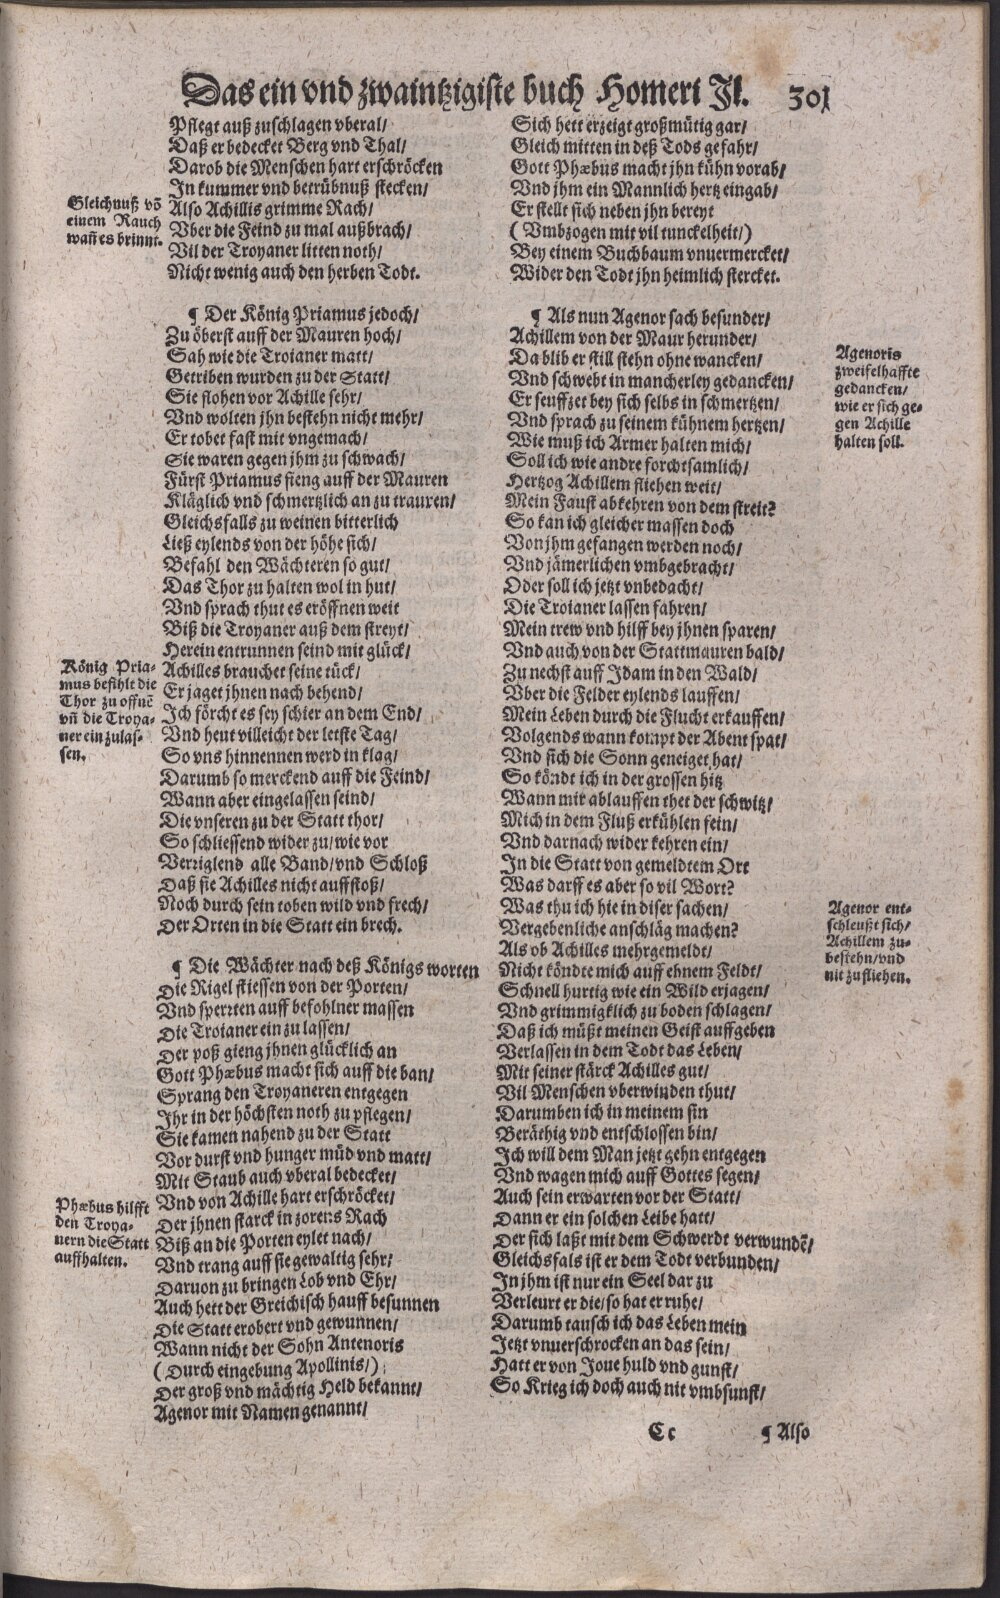 Das ein vnd zwaintzigiste buch Homeri Jl. 301
Pflegt auß zuschlagen vberal/
Daß er bedecket Berg vnd Thal/
Darob die Menschen hart erschröcken
In kummer vnd betrübnuß stecken/
Also Achillis grimme Rach/
Vber die Feind zu mal außbrach/
Vil der Troyaner litten noth/
Nicht wenig auch den herben Todt.
Gleichnuß võ
einem Rauch
wañ es brinnt.
¶ Der König Priamus jedoch/
Zu öberst auff der Mauren hoch/
Sah wie die Troianer matt/
Getriben wurden zu der Statt/
Sie flohen vor Achille sehr/
Vnd wolten jhn bestehn nicht mehr/
Er tobet fast mit vngemach/
Sie waren gegen jhm zu schwach/
Fürst Priamus fieng auff der Mauren
Kläglich vnd schmertzlich an zu trauren/
Gleichsfalls zu weinen bitterlich
Ließ eylends von der höhe sich/
Befahl den Wächteren so gut/
Das Thor zu halten wol in hut/
Vnd sprach thut es eröffnen weit
Biß die Troyaner auß dem streyt/
Herein entrunnen seind mit glück/
Achilles brauchet seine tück/
Er jaget jhnen nach behend/
Ich förcht es sey schier an dem End/
Vnd heut villeicht der letste Tag/
So vns hinnennen werd in klag/
Darumb so merckend auff die Feind/
Wann aber eingelassen seind/
Die vnseren zu der Statt thor/
So schliessend wider zu/wie vor
Verriglend alle Band/vnd Schloß
Daß sie Achilles nicht auffstoß/
Noch durch sein toben wild vnd frech/
Der Orten in die Statt ein brech.
König Pria-
mus befihlt die
Thor zu offnẽ
vñ die Troya-
ner ein zulas-
sen.
¶ Die Wächter nach deß Königs worten
Die Rigel stiessen von der Porten/
Vnd sperrten auff befohlner massen
Die Troianer ein zu lassen/
Der poß gieng jhnen glücklich an
Gott Phæbus macht sich auff die ban/
Sprang den Troyaneren entgegen
Ihr in der höchsten noth zu pflegen/
Sie kamen nahend zu der Statt
Vor durst vnd hunger müd vnd matt/
Mit Staub auch vberal bedecket/
Vnd von Achille hart erschröcket/
Der jhnen starck in zorens Rach
Biß an die Porten eylet nach/
Vnd trang auff sie gewaltig sehr/
Daruon zu bringen Lob vnd Ehr/
Auch hett der Greichisch hauff besunnen
Die Statt erobert vnd gewunnen/
Wann nicht der Sohn Antenoris
(Durch eingebung Apollinis/)
Der groß vnd mächtig Held bekannt/
Agenor mit Namen genannt/
Phæbus hilfft
den Troya-
nern die Statt
auffhalten.
Sich hett erzeigt großmütig gar/
Gleich mitten in deß Tods gefahr/
Gott Phæbus macht jhn kühn vorab/
Vnd jhm ein Mannlich hertz eingab/
Er stellt sich neben jhn bereyt
(Vmbzogen mit vil tunckelheit/)
Bey einem Buchbaum vnuermercket/
Wider den Todt jhn heimlich stercket.
¶ Als nun Agenor sach besunder/
Achillem von der Maur herunder/
Da blib er still stehn ohne wancken/
Vnd schwebt in mancherley gedancken/
Er seuffzet bey sich selbs in schmertzen/
Vnd sprach zu seinem kühnem hertzen/
Wie muß ich Armer halten mich/
Soll ich wie andre forchtsamlich/
Hertzog Achillem fliehen weit/
Mein Faust abkehren von dem streit?
So kan ich gleicher massen doch
Von jhm gefangen werden noch/
Vnd jämerlichen vmbgebracht/
Oder soll ich jetzt vnbedacht/
Die Troianer lassen fahren/
Mein trew vnd hilff bey jhnen sparen/
Vnd auch von der Stattmauren bald/
Zu nechst auff Idam in den Wald/
Vber die Felder eylends lauffen/
Mein Leben durch die Flucht erkauffen/
Volgends wann kompt der Abent spat/
Vnd sich die Sonn geneiget hat/
So köndt ich in der grossen hitz
Wann mir ablauffen thet der schwitz/
Mich in dem Fluß erkühlen fein/
Vnd darnach wider kehren ein/
In die Statt von gemeldtem Ort
Was darff es aber so vil Wort?
Was thu ich hie in diser sachen/
Vergebenliche anschläg machen?
Als ob Achilles mehrgemeldt/
Nicht köndte mich auff ebnem Feldt/
Schnell hurtig wie ein Wild erjagen/
Vnd grimmigklich zu boden schlagen/
Daß ich müßt meinen Geist auffgeben
Verlassen in dem Todt das Leben/
Mit seiner stärck Achilles gut/
Vil Menschen vberwinden thut/
Darumben ich in meinem sin
Beräthig vnd entschlossen bin/
Ich will dem Man jetzt gehn entgegen
Vnd wagen mich auff Gottes segen/
Auch sein erwarten vor der Statt/
Dann er ein solchen Leibe hatt/
Der sich laßt mit dem Schwerdt verwundẽ/
Gleichsfals ist er dem Todt verbunden/
In jhm ist nur ein Seel dar zu
Verleurt er die/so hat er ruhe/
Darumb tausch ich das Leben mein
Jetzt vnuerschrocken an das sein/
Hatt er von Ioue huld vnd gunst/
So Krieg ich doch auch nit vmbsunst/
Agenoris
zweifelhaffte
gedancken/
wie er sich ge-
gen Achille
halten soll.
Agenor ent-
schleußt sich/
Achillem zu-
bestehn/vnd
nit zu fliehen.
Cc ¶ Also